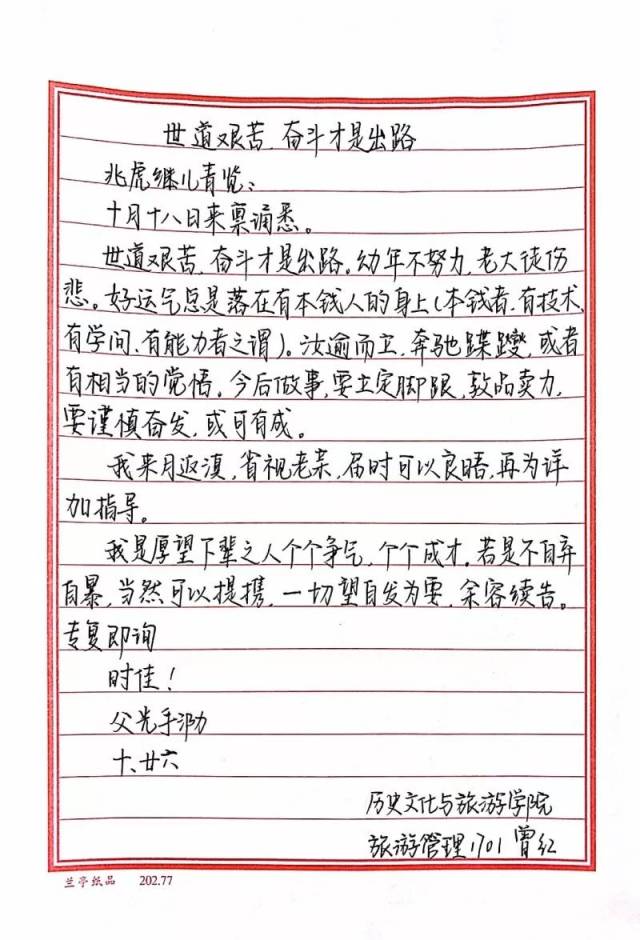 世道艰苦,奋斗才是出路
兆虎继儿青览:
十月十八日来禀诵悉。
世道艰苦,奋斗才是出路。幼年不努力,老大徒伤
悲。好运气总是落在有本钱人的身上(本钱者,有技术、
有学问、有能力者之谓)。汝逾而立,奔驰蹀躞,或者
有相当的觉悟。今后做事,要立定脚限,敦品卖力,
要谨慎奋发,或可有成。
我来月返滇,省视老亲,届时可以良晤,再为详
加指导。
我是厚望下辈之人个个争气,个个成才。若是不自弃
自暴,当然可以提携,一切望自发为要,余容续告。
专复即询
时佳!
父光手泐
十、廿六
历史文化与旅游学院
旅游管理1701 曾红
兰亭纸品 202.77